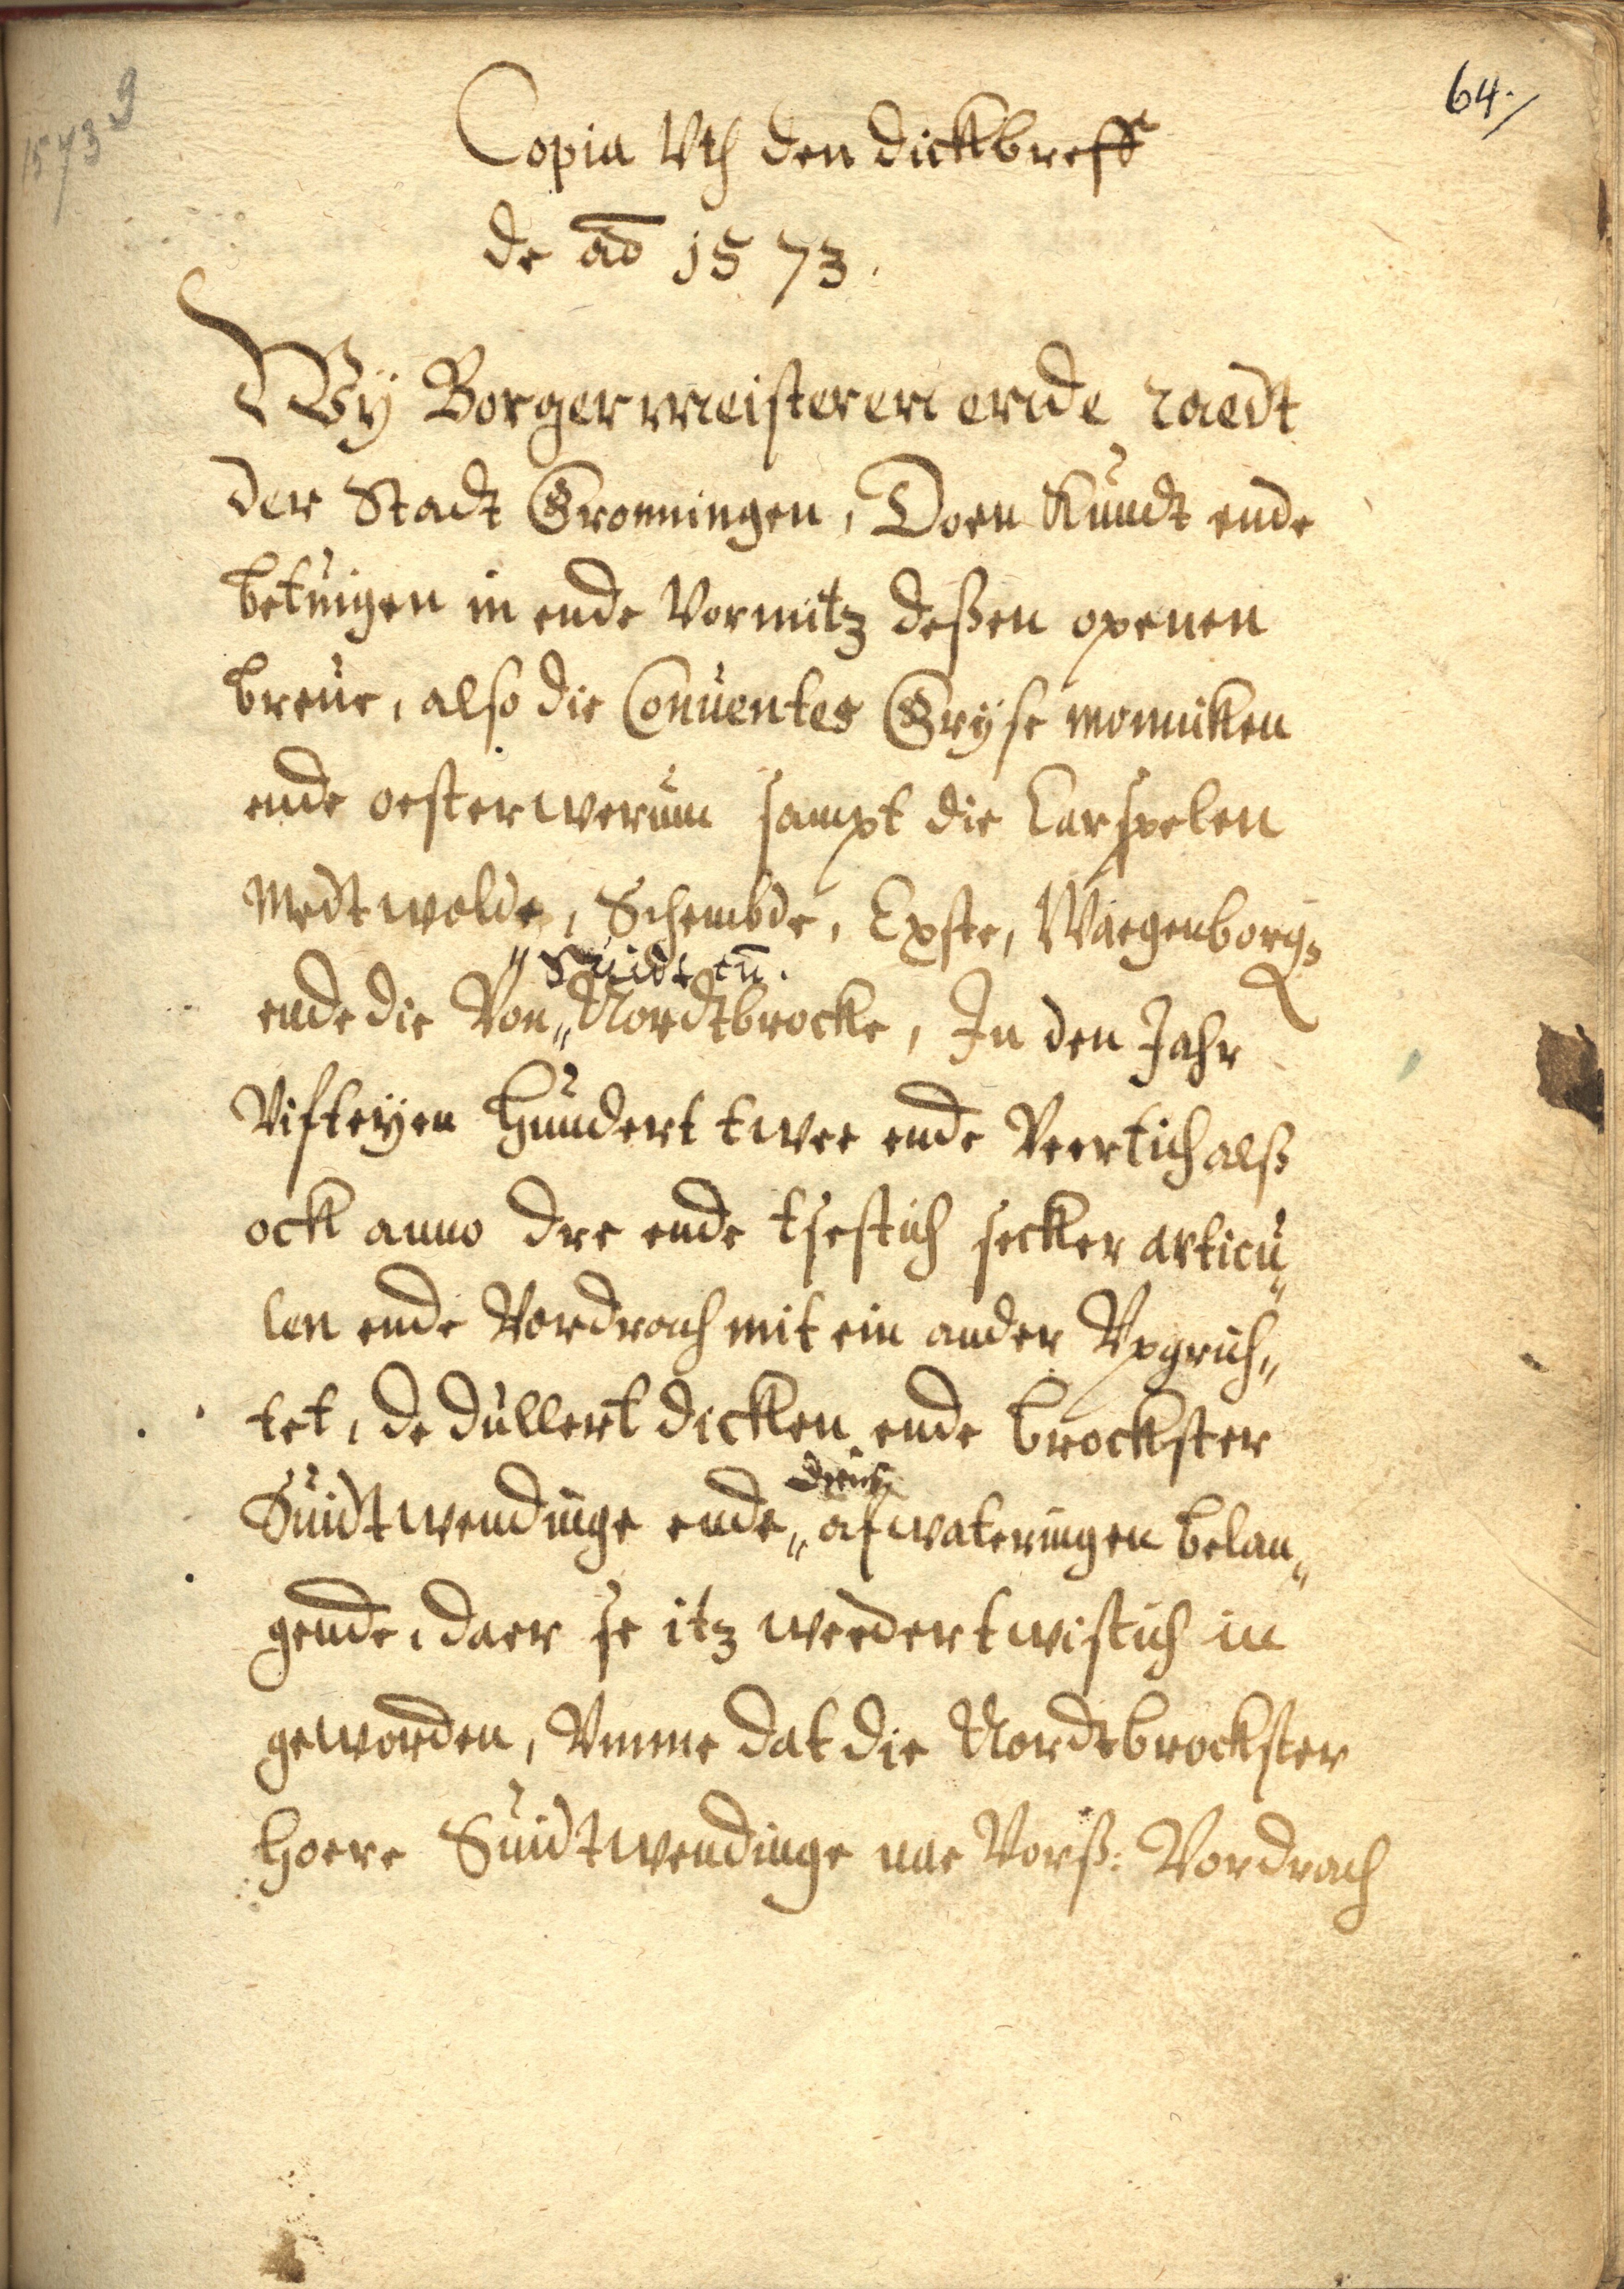 9
1573
64.
Copia Vth den dickbreff
de ao 1573.
Wÿ Borgermeisteren ende raedt
der Stadt Gronningen, Doen Kundt ende
betuigen in ende vormitz deßen openen
breue, also die Conuentes Grÿse monniken
ende oesterwerum sampt die Carspelen
Medtwolde, Schembde, Exste, Waegenborg,
„ Suidt en.
ende die Von „ Nordtbrocke, In den Jahr
Vifteÿen hundert twee ende Veertich alß
ock anno dre ende tsestich secker articu„
len ende Vordrach mit ein ander Vpgerich„
tet, de dullert dicken ende brockster
Suidtwendinge ende „ afwateringen belan„
gende, daer se itz weeder twistich in
geworden, Vmme dat die Nordtbrockster
hoere Suidtwendinge nae Vorß: Vordrach